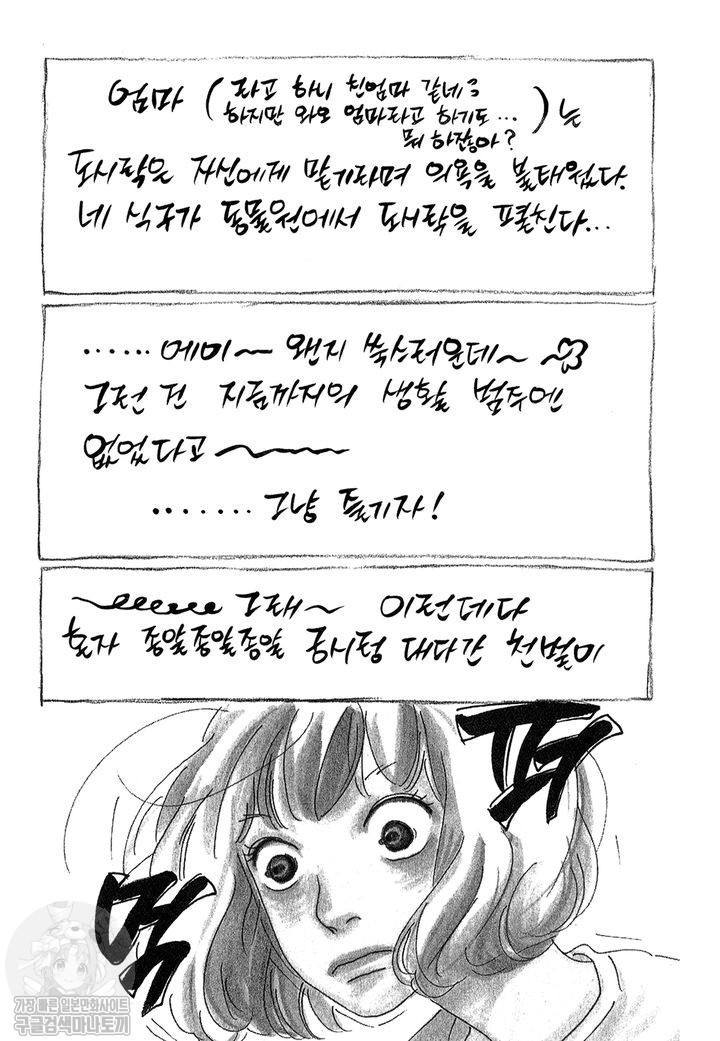 엄마 (라고 하니 친엄마 같네ㅋ
하지만 와요 엄마라고 하기도...
뭐 하잖아?) 는
도시락은 자신에게 맡기라며 의욕을 불태웠다.
네 식구가 동물원에서 도시락을 펼친다...
......에미~ 왠지 쑥스러운데~
그런 건 지금까지의 생활 범주에
없었다고~
.......그냥 즐기자!
그래~ 이런데다
혼자 종알종알종알 궁시렁 대다간 천벌이
퍼
억
가장 빠른 일본만화사이트
구글검색마나토끼